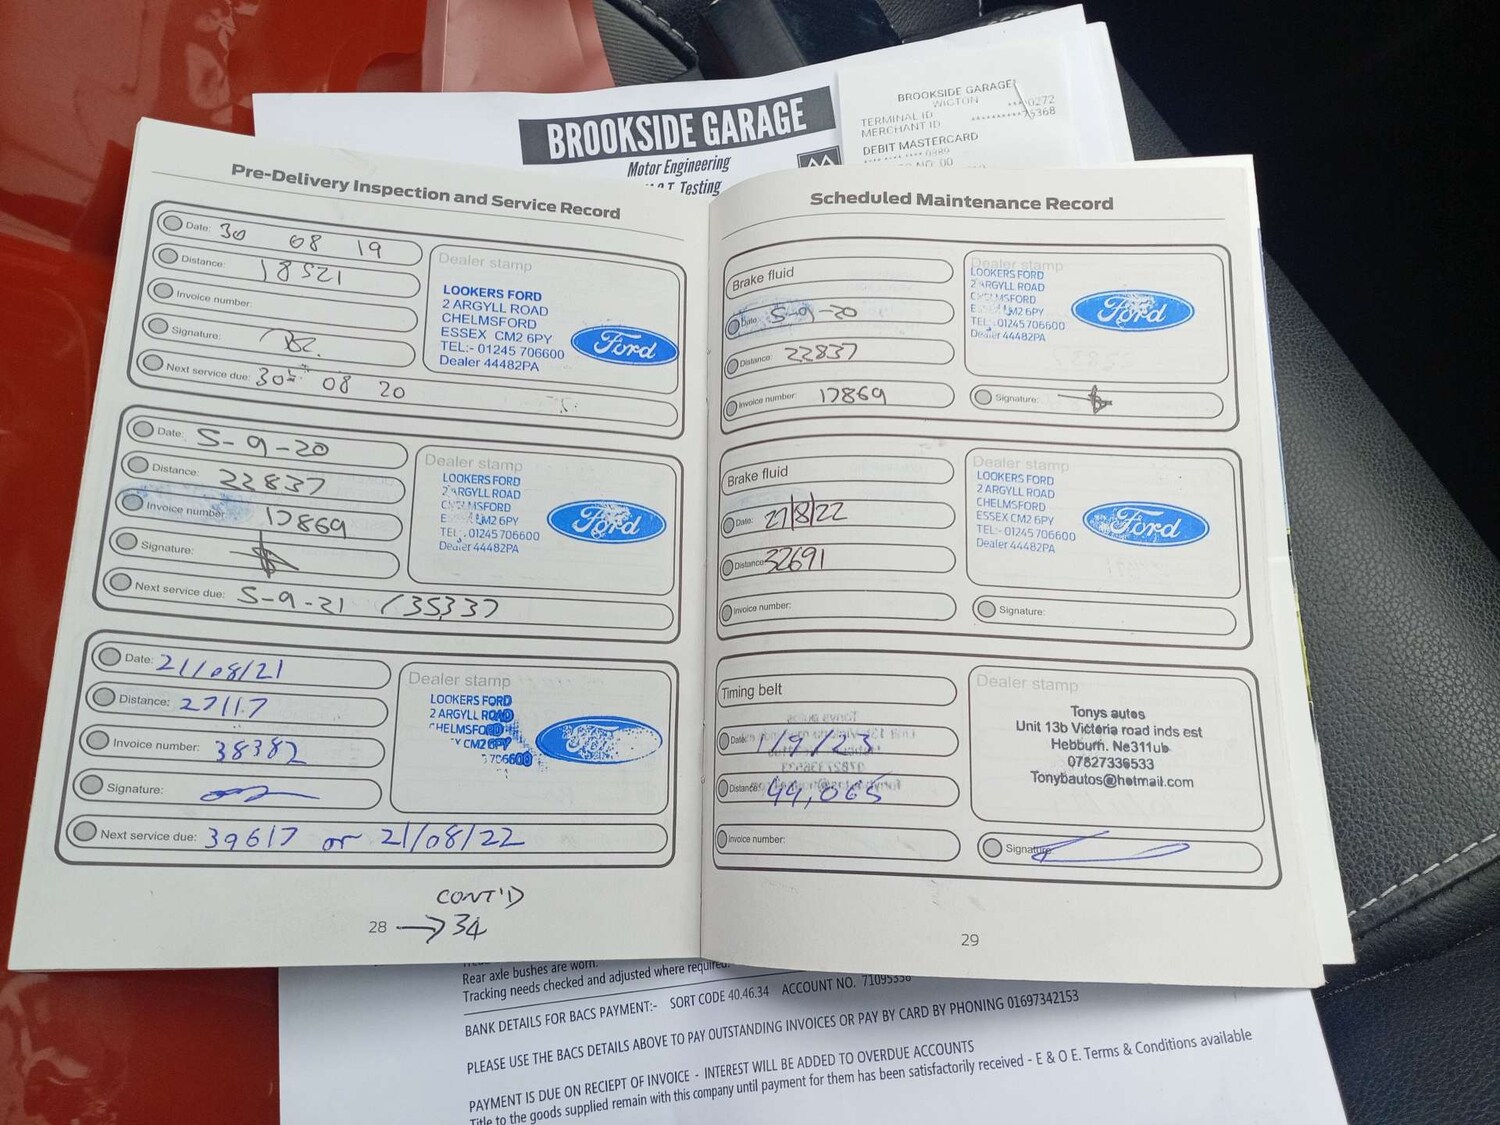 BROOKSIDE GARAGE
Motor Engineering
Testing
BROOKSIDE GARAGE
WIGTON
TERMINAL ID ****0272
MERCHANT ID **********75368
DEBIT MASTERCARD
NO. 00
Pre-Delivery Inspection and Service Record
Date: 30 08 19
Distance: 18521
Invoice number:
Signature:
Next service due: 30 08 20
Dealer stamp
LOOKERS FORD
2 ARGYLL ROAD
CHELMSFORD
ESSEX CM2 6PY
TEL:- 01245 706600
Dealer 44482PA
Ford
Date: 5-9-20
Distance: 22837
Invoice number: 17869
Signature:
Next service due: 5-9-21 / 35337
Dealer stamp
LOOKERS FORD
2 ARGYLL ROAD
CHELMSFORD
CM2 6PY
TEL:- 01245 706600
Dealer 44482PA
Ford
Date: 21/08/21
Distance: 27117
Invoice number: 38382
Signature:
Next service due: 39617 or 21/08/22
Dealer stamp
LOOKERS FORD
2 ARGYLL ROAD
CHELMSFORD
CM2 6PY
706600
Ford
CONT'D
28 → 34
Scheduled Maintenance Record
Brake fluid
Date: 5-9-20
Distance: 22837
Invoice number: 17869
Dealer stamp
LOOKERS FORD
2 ARGYLL ROAD
CHELMSFORD
CM2 6PY
TEL:- 01245 706600
Dealer 44482PA
Ford
Signature:
Brake fluid
Date: 27/8/22
Distance: 32691
Invoice number:
Dealer stamp
LOOKERS FORD
2 ARGYLL ROAD
CHELMSFORD
ESSEX CM2 6PY
TEL:- 01245 706600
Dealer 44482PA
Ford
Signature:
Timing belt
Date: 1/9/23
Distance: 44,065
Invoice number:
Dealer stamp
Tonys autos
Unit 13b Victoria road inds est
Hebburn. Ne311ub
07827336533
Tonybautos@hotmail.com
Signature:
29
Rear axle bushes are worn.
Tracking needs checked and adjusted where required.
BANK DETAILS FOR BACS PAYMENT:- SORT CODE 40.46.34 ACCOUNT NO. 71095358
PLEASE USE THE BACS DETAILS ABOVE TO PAY OUTSTANDING INVOICES OR PAY BY CARD BY PHONING 01697342153
PAYMENT IS DUE ON RECIEPT OF INVOICE - INTEREST WILL BE ADDED TO OVERDUE ACCOUNTS
Title to the goods supplied remain with this company until payment for them has been satisfactorily received - E & O E. Terms & Conditions available